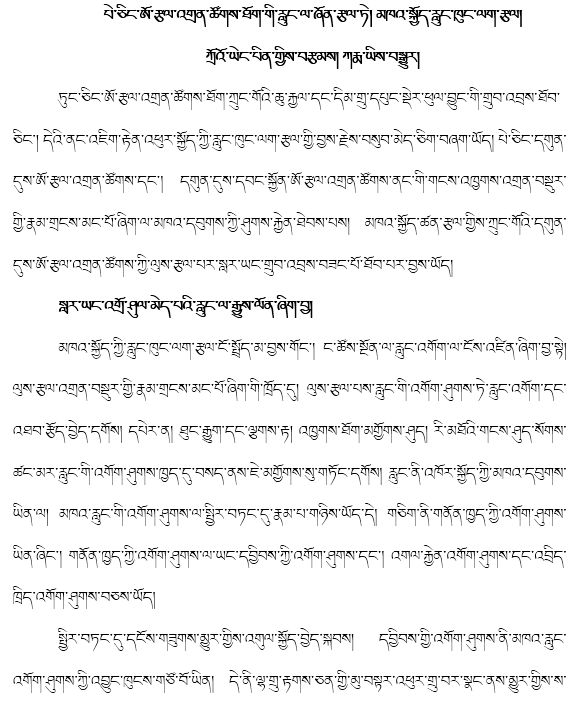 པེ་ཅིང་ཨོ་རྩལ་འགྲན་ཚོགས་ཐོག་གི་རླུང་ལ་ཞོན་རྩལ་ཏེ། མཁའ་སྐྱོད་རླུང་ཁུང་ལག་རྩལ།
ཀྲོའོ་ཡེང་པིན་གྱིས་བརྩམས། ཀརྨ་ཡིས་བསྒྱུར།
ཏུང་ཅིང་ཨོ་རྩལ་འགྲན་ཚོགས་ཐོག་ཀྲུང་གོའི་ཆུ་རྐྱལ་དང་དེམ་གྲུ་དཔུང་སྡེར་ཕུལ་བྱུང་གི་གྲུབ་འབྲས་ཐོབ་
ཅིང་། དེའི་ནང་འཇིག་རྟེན་འཕུར་སྐྱོད་ཀྱི་རླུང་ཁུང་ལག་རྩལ་གྱི་བྱས་རྗེས་བསུབ་མེད་ཅིག་བཞག་ཡོད། པེ་ཅིང་དགུན་
དུས་ཨོ་རྩལ་འགྲན་ཚོགས་དང་། དགུན་དུས་དབང་སྐྱོན་ཨོ་རྩལ་འགྲན་ཚོགས་ནང་གི་གངས་འཁྱགས་འགྲན་བསྡུར་
གྱི་རྣམ་གྲངས་མང་པོ་ཞིག་ལ་མཁའ་དབུགས་ཀྱི་ཤུགས་རྐྱེན་ཐེབས་པས། མཁའ་སྐྱོད་ཚན་རྩལ་གྱིས་ཀྲུང་གོའི་དགུན་
དུས་ཨོ་རྩལ་འགྲན་ཚོགས་ཀྱི་ལུས་རྩལ་པར་སླར་ཡང་གྲུབ་འབྲས་བཟང་པོ་ཐོབ་པར་བྱས་ཡོད།
སླར་ཡང་འགྲོ་ཤུལ་མེད་པའི་རླུང་ལ་རྒྱུས་ལོན་ཞིག་བྱ།
མཁའ་སྐྱོད་ཀྱི་རླུང་ཁུང་ལག་རྩལ་ངོ་སྤྲོད་མ་བྱས་གོང་། ང་ཚོས་སྔོན་ལ་རླུང་འགོག་ལ་ངོས་འཛིན་ཞིག་བྱ་སྟེ།
ལུས་རྩལ་འགྲན་བསྡུར་གྱི་རྣམ་གྲངས་མང་པོ་ཞིག་གི་ཁྲོད་དུ། ལུས་རྩལ་པས་རླུང་གི་འགོག་ཤུགས་ཏེ་རླུང་འགོག་དང་
འཐབ་རྩོད་བྱེད་དགོས། དཔེར་ན། ཐུང་རྒྱུག་དང་ལྕགས་རྟ། འཁྱགས་ཐོག་མགྱོགས་ཤུད། རི་མཐོའི་གངས་ཤུད་སོགས་
ཚང་མར་རླུང་གི་འགོག་ཤུགས་ཁྱད་དུ་བསད་ནས་ཇེ་མགྱོགས་སུ་གཏོང་དགོས། རླུང་ནི་འཁོར་སྐྱོད་ཀྱི་མཁའ་དབུགས་
ཡིན་ལ། མཁའ་རླུང་གི་འགོག་ཤུགས་ལ་སྤྱིར་བཏང་དུ་རྣམ་པ་གཉིས་ཡོད་དེ། གཅིག་ནི་གནོན་ཁྱད་ཀྱི་འགོག་ཤུགས་
ཡིན་ཞིང་། གནོན་ཁྱད་ཀྱི་འགོག་ཤུགས་ལ་ཡང་དབྱིབས་ཀྱི་འགོག་ཤུགས་དང་། འགལ་རྐྱེན་འགོག་ཤུགས་དང་འབྲིད་
ཁྲིད་འགོག་ཤུགས་བཅས་ཡོད།
སྤྱིར་བཏང་དུ་དངོས་གཟུགས་མྱུར་གྱིས་འགུལ་སྐྱོད་བྱེད་སྐབས། དབྱིབས་ཀྱི་འགོག་ཤུགས་ནི་མཁའ་རླུང་
འགོག་ཤུགས་ཀྱི་འབྱུང་ཁུངས་གཙོ་བོ་ཡིན། དེ་ནི་ལྷ་གྲུ་རྟགས་ཅན་གྱི་མུ་བསྟར་འཕུར་གྲུ་བར་སྣང་ནས་མྱུར་གྱིས་ས་